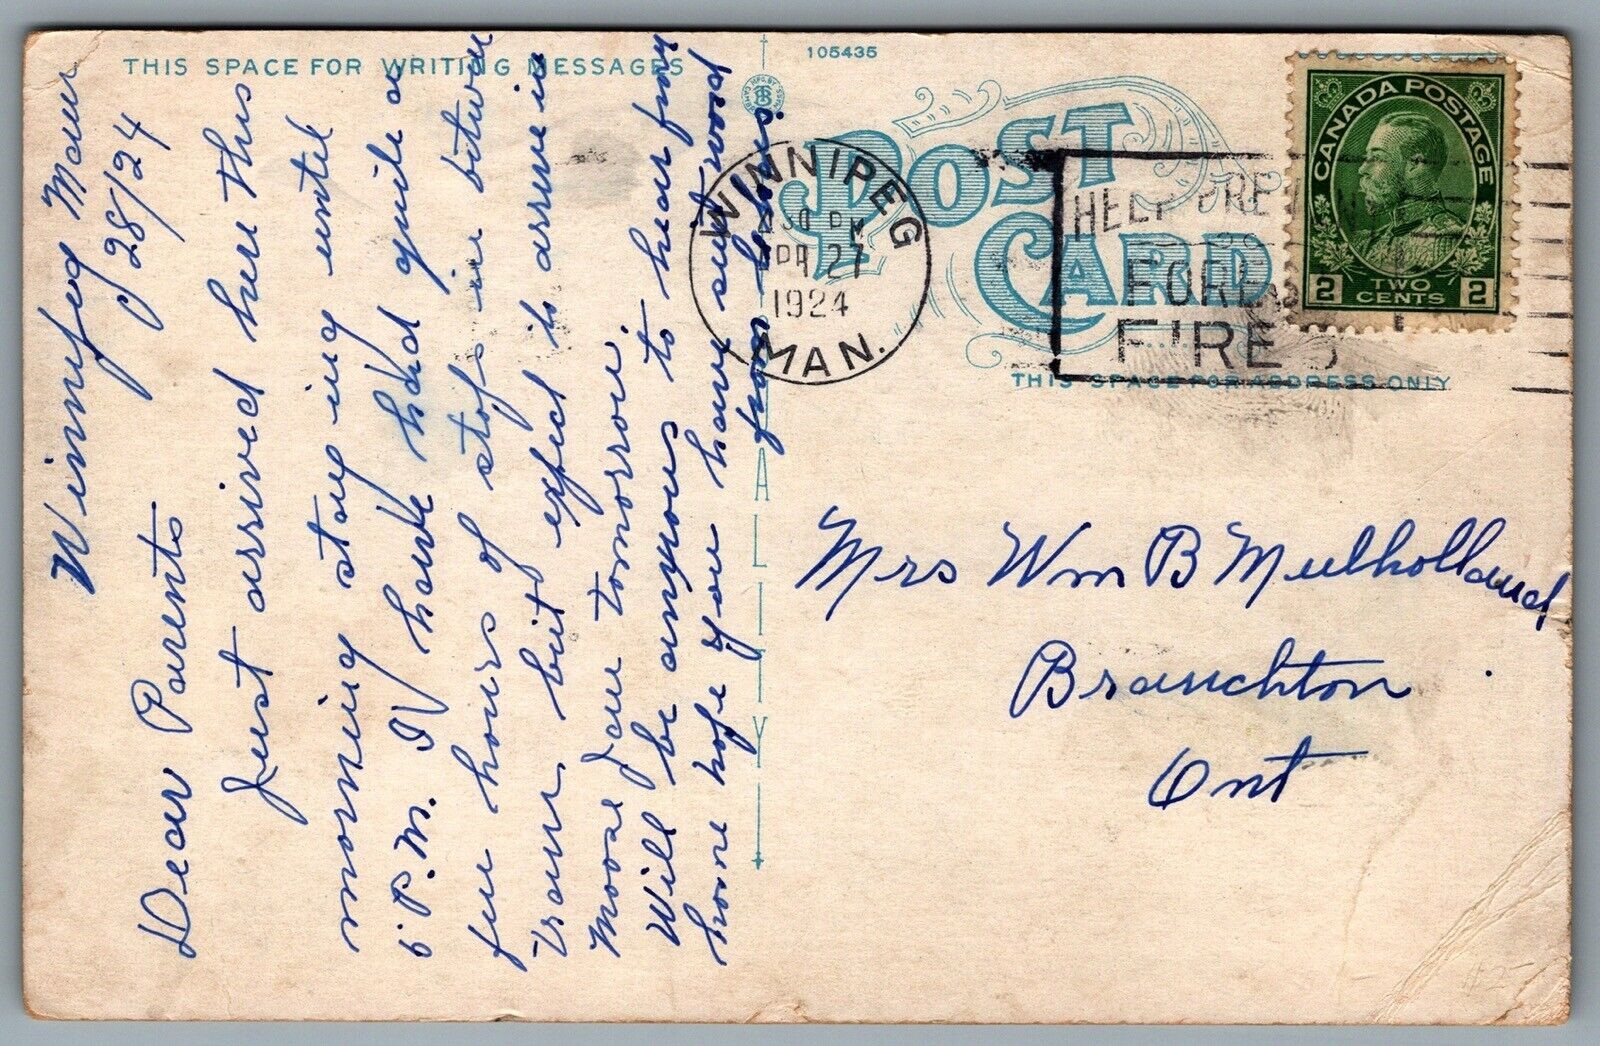 THIS SPACE FOR WRITING MESSAGES
105435
POST
CARD
THIS SPACE FOR ADDRESS ONLY
CANADA POSTAGE
2 TWO CENTS 2
WINNIPEG
30 PM
APR 27
1924
MAN.
HELP PREVENT
FOREST
FIRES
Winnipeg Man
28/24
Dear Parents
Just arrived here this
morning staying until
5 P.M. I have had quite a
few hours of stops in between
trains but expect to arrive in
Moose Jaw tomorrow.
Will be anxious to hear from
home hope you have sent word
from
Mrs Wm B Mulholland
Branchton
Ont
#2